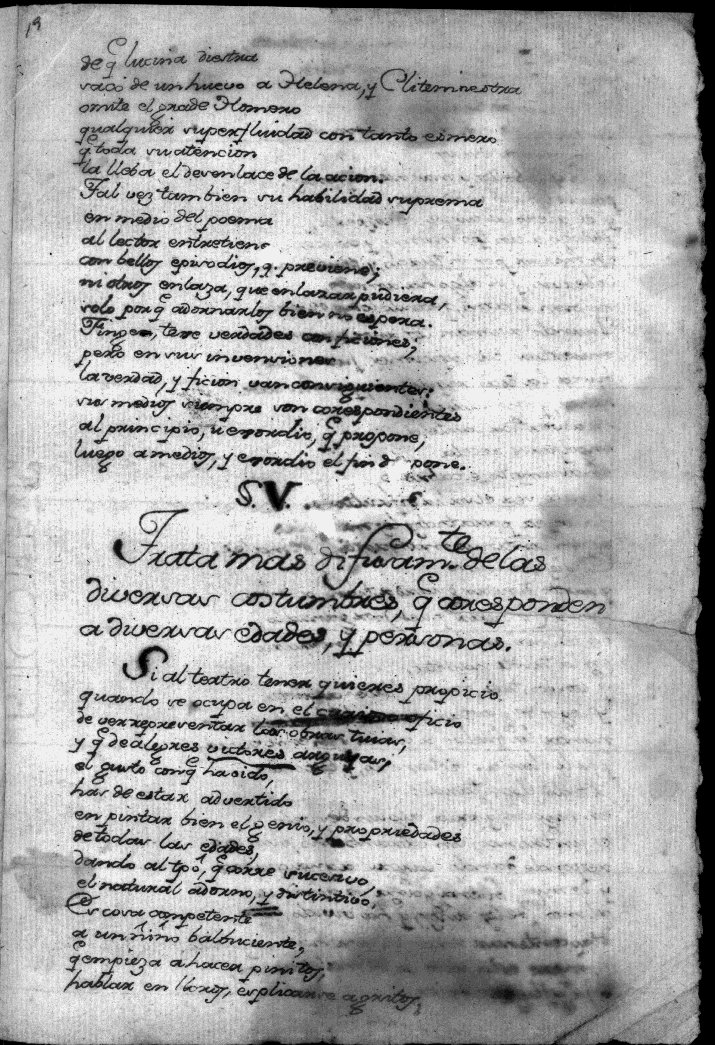 19
de q̃ lucina diestra
sacò de un huevo a Helena, y Clitemnestra
omite el grãde Homero
qualquier superfluidad con tanto esmero
q̃ toda su atencion
la lleba el desenlace de la acion.
Tal vez tambien su habilidad suprema
en medio del poema
al lector entretiene
con bellos episodios, q. previene;
ni otros enlaza, que enlazar pudiera,
solo porq̃ adornarlos bien no espera.
Finge, texe verdades con ficiones;
pero en sus invensiones
la verdad, y ficion van consiguientes:
sus medios siempre son corespondientes
al principio, u exordio, q̃ propone,
luego a medios, y exordio el fin pone.
S. V.
Trata mas difusam.te de las
diversas costumbres, q̃ coresponden
a diversas edades, y personas.
Si al teatro tener quieres propicio
quando se ocupa en el oficio
de ver representar las obras tuias,
y q̃ de alegres victores arguyas,
el gusto conq̃ ha sido,
has de estar advertido
en pintar bien el genio, y propriedades
de todas las edades,
dando al tpõ, q̃ corre sucesivo,
el natural adorno, y distintivo,
Es cosa competente
a un niño balbuciente,
q̃ empieza a hacer pinitos,
hablar en lloros, esplicarse a gritos;